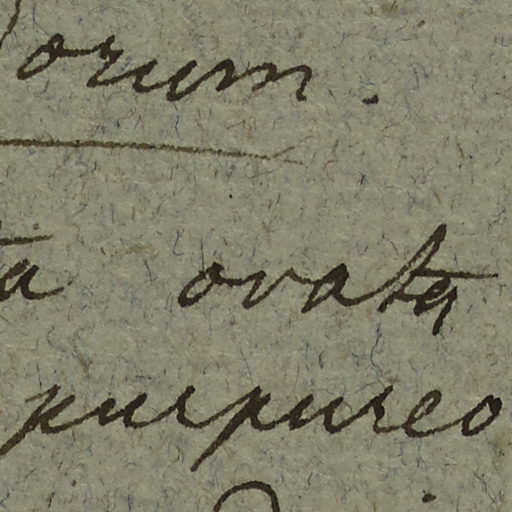 orum.
ta ovata
purpureo